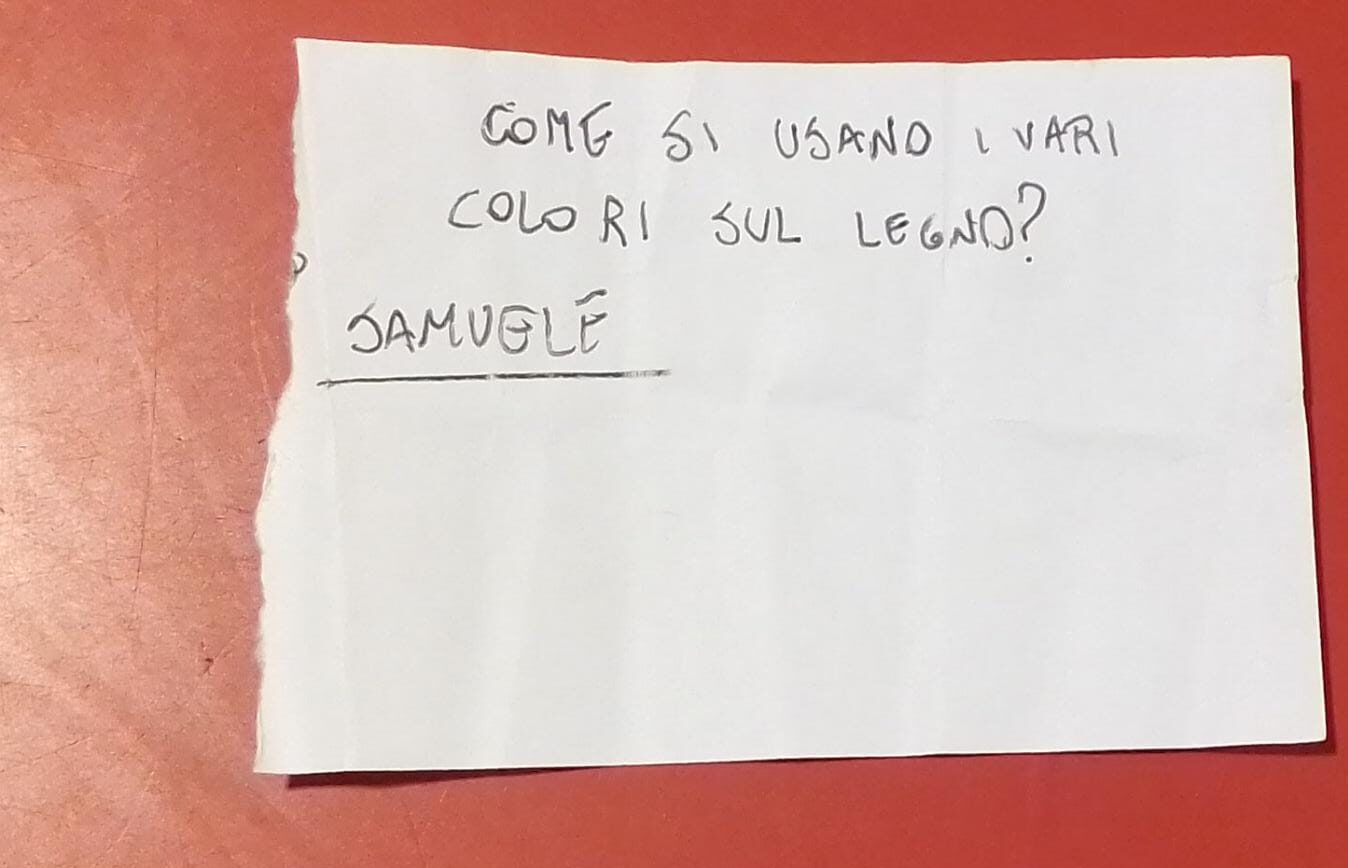 COME SI USANO I VARI
COLORI SUL LEGNO?
SAMUELE